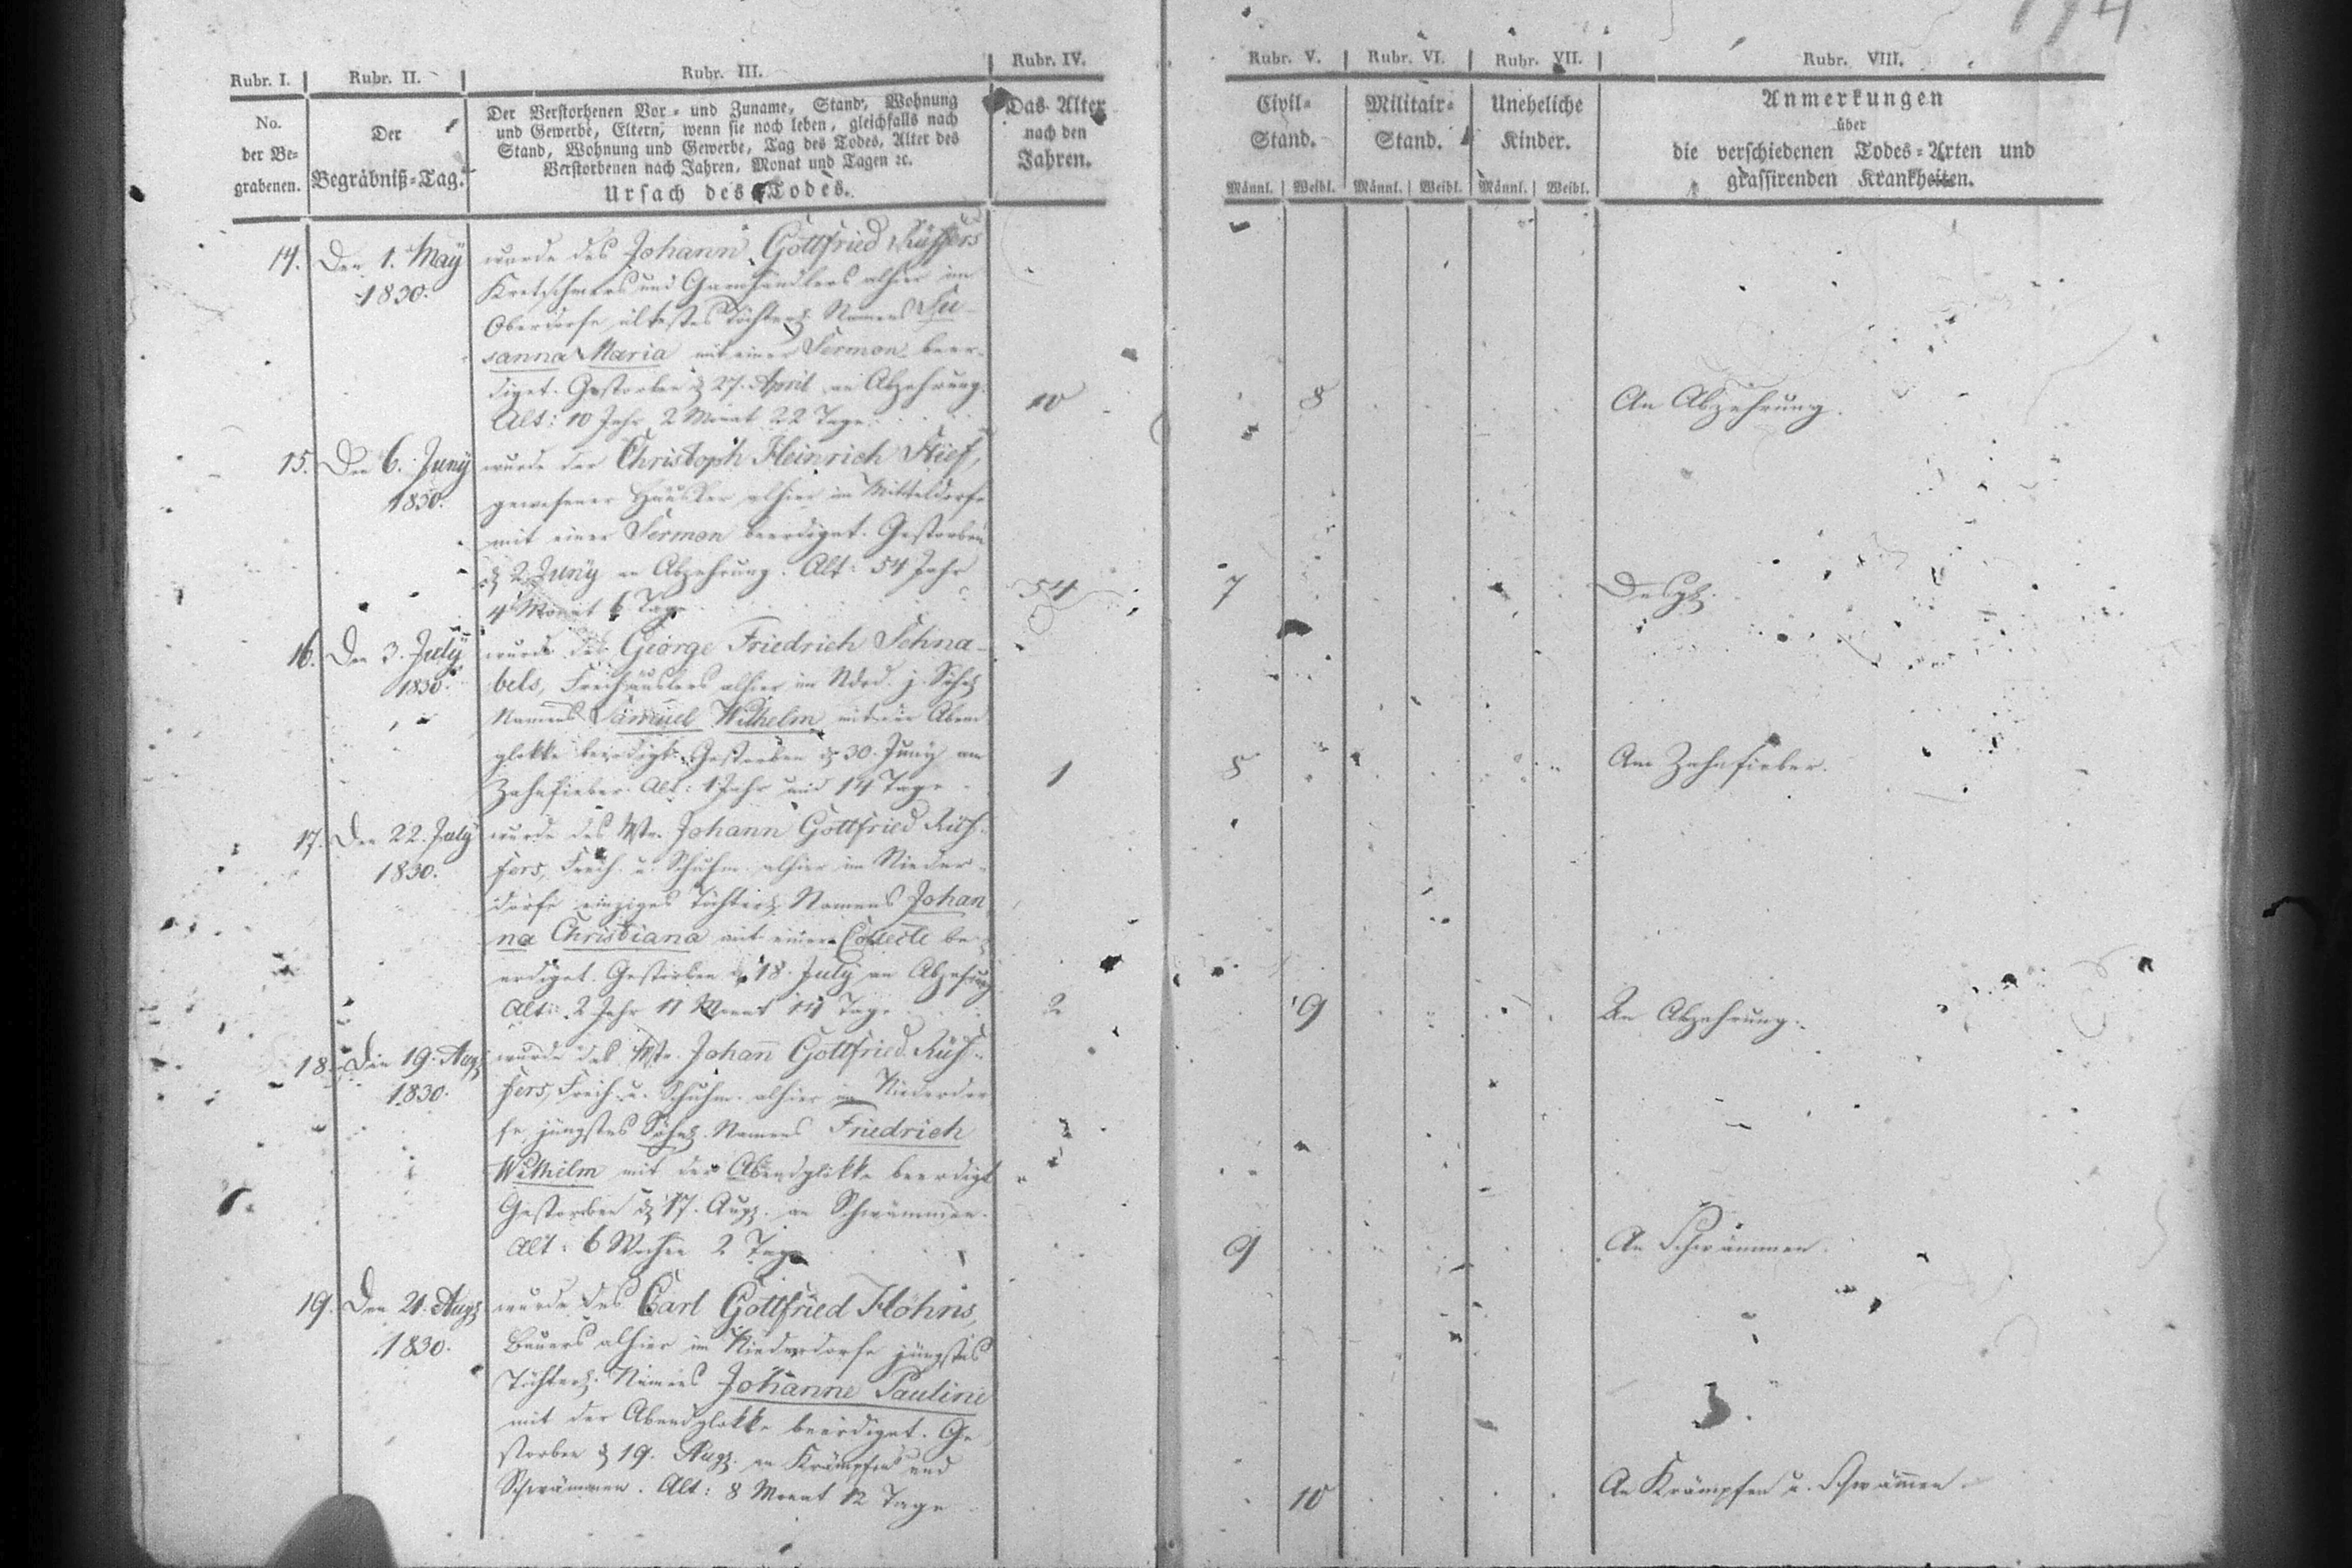 174
Rubr. I.
Rubr. II.
Rubr. III.
Rubr. IV.
Rubr. V.
Rubr. VI.
Rubr. VII.
Rubr. VIII.
No.
der Be-
grabenen.
Der
Begräbniß-Tag.
Der Verstorbenen Vor- und Zuname, Stand, Wohnung
und Gewerbe, Eltern, wenn sie noch leben, gleichfalls nach
Stand, Wohnung und Gewerbe, Tag des Todes, Alter des
Verstorbenen nach Jahren, Monat und Tagen ꝛc.
Ursach des Todes.
Das Alter
nach den
Jahren.
Civil-
Stand.
Männl. Weibl.
Militair-
Stand.
Männl. Weibl.
Uneheliche
Kinder.
Männl. Weibl.
Anmerkungen
über
die verschiedenen Todes-Arten und
grassirenden Krankheiten.
14. Den 1. May
1830.
wurde des Johann Gottfried Rüffers
Kretschmers und Garnhändlers alhier im
Oberdorfe ältestes Töchterl. Namens Su-
sanna Maria mit einer Sermon beer-
diget. Gestorben d. 27. April an Abzehrung.
Alt: 10 Jahr 2 Monat 22 Tage.
10
8
An Abzehrung.
15. Den 6. Juny
1830.
wurde der Christoph Heinrich
gewesener Häusler alhier im Mitteldorfe
mit einer Sermon beerdiget. Gestorben
d. 2. Juny an Abzehrung. Alt: 54 Jahr
4 Monat 6 Tage
54
7
Desgl.
16. Den 3. July
1830.
wurde des George Friedrich Schna-
bels, Freihäuslers alhier im Ndrd. j. Söhnl.
Namens Samuel Wilhelm mit der Abend
glokke beerdigt. Gestorben d. 30. Juny am
Zahnfieber. Alt: 1 Jahr und 14 Tage
1
8
Am Zahnfieber.
17. Den 22. July
1830.
wurde des Mstr. Johann Gottfried Rüf-
fers, Freih. u. Schuhm. alhier im Nieder-
dorfe einziges Töchterl. Namens Johan
na Christiana mit einer Collecte be-
erdiget. Gestorben d. 18. July an Abzehrung
Alt: 2 Jahr 11 Monat Tage
2
9
An Abzehrung.
18. Den 19. Aug.
1830.
wurde des Mstr. Johann Gottfried Rüf-
fers, Freih. u. Schuhm. alhier im Niederdor
fe jüngstes Söhnl. Namens Friedrich
Wilhelm mit der Abendglokke beerdigt
Gestorben d. 17. Aug. an Schwämmen.
Alt: 6 Wochen 2 Tage
9
An Schwämmen.
19. Den 21. Aug.
1830.
wurde des Carl Gottfried
Bauers alhier im Niederdorfe jüngstes
Töchterl. Namens Johanne Pauline
mit der Abendglokke beerdiget. Ge
storben d. 19. Aug. an Krämpfen und
Schwämmen. Alt: 8 Monat 12 Tage
10
An Krämpfen u. Schwämmen.